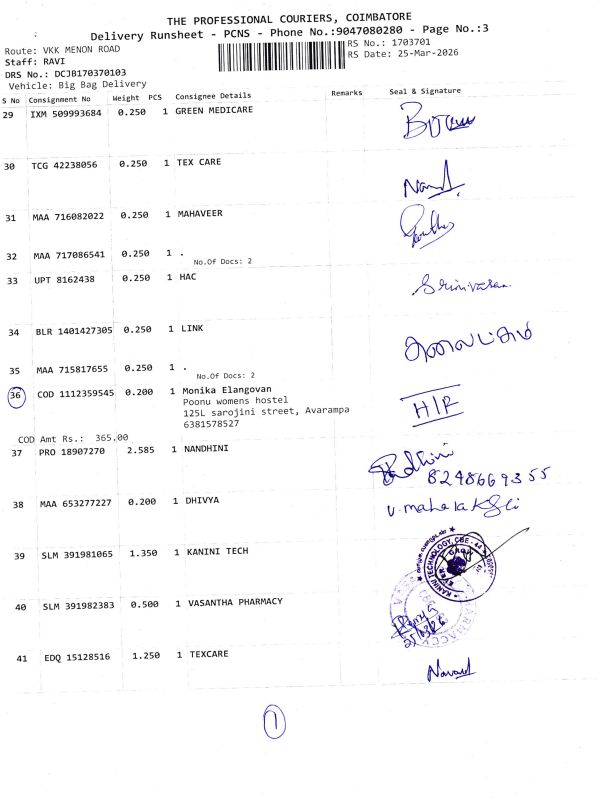 THE PROFESSIONAL COURIERS, COIMBATORE
Delivery Runsheet - PCNS - Phone No.:9047080280 - Page No.:3
Route: VKK MENON ROAD
RS No.: 1703701
Staff: RAVI
RS Date: 25-Mar-2026
DRS No.: DCJB170370103
Vehicle: Big Bag Delivery
S No Consignment No Weight PCS Consignee Details Remarks Seal & Signature
29 IXM 509993684 0.250 1 GREEN MEDICARE
30 TCG 42238056 0.250 1 TEX CARE
31 MAA 716082022 0.250 1 MAHAVEER
32 MAA 717086541 0.250 1 .
No.Of Docs: 2
33 UPT 8162438 0.250 1 HAC
Srinivasan
34 BLR 1401427305 0.250 1 LINK
35 MAA 715817655 0.250 1 .
No.Of Docs: 2
36 COD 1112359545 0.200 1 Monika Elangovan
Poonu womens hostel
125L sarojini street, Avarampa
6381578527
COD Amt Rs.: 365.00
37 PRO 18907270 2.585 1 NANDHINI
8248669355
38 MAA 653277227 0.200 1 DHIVYA
39 SLM 391981065 1.350 1 KANINI TECH
KANINI TECHNOLOGY, CBE - 44
40 SLM 391982383 0.500 1 VASANTHA PHARMACY
41 EDQ 15128516 1.250 1 TEXCARE
1